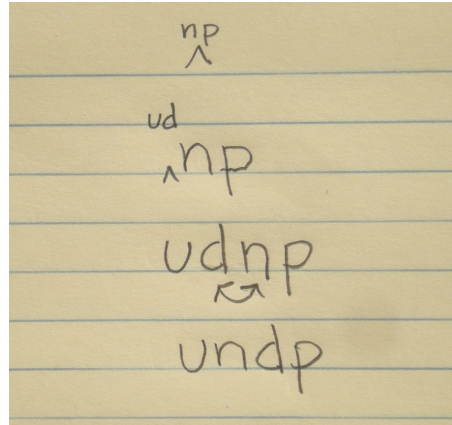 np
ud
np
udnp
undp